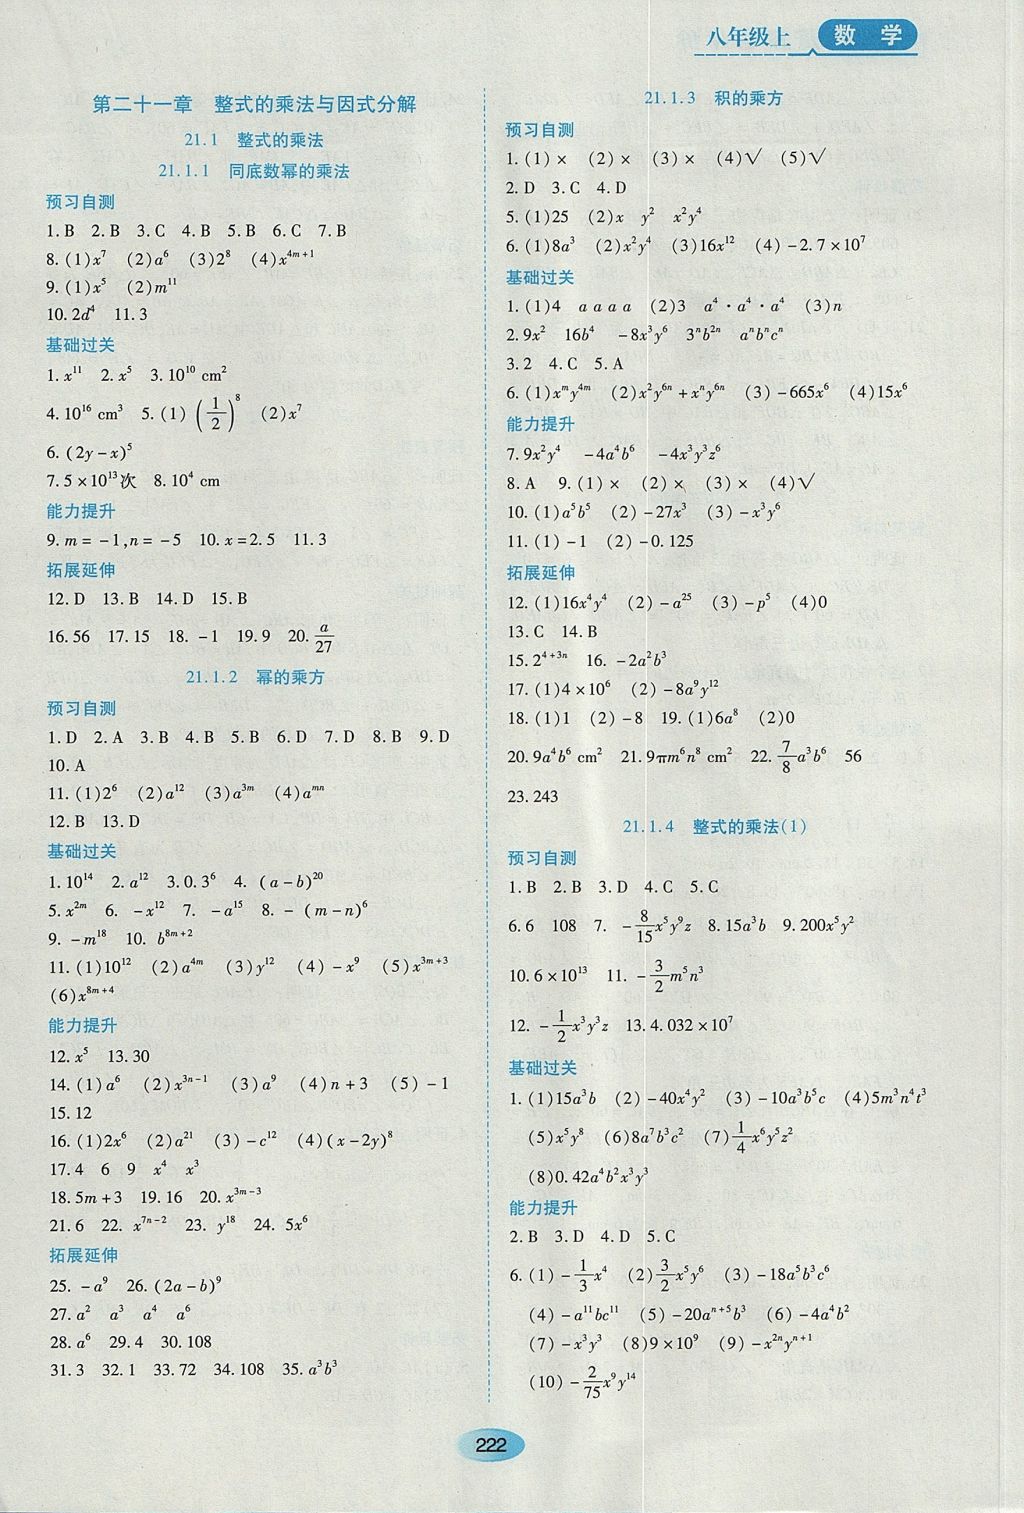 八年级上 数 学
第二十一章 整式的乘法与因式分解
21.1 整式的乘法
21.1.1 同底数幂的乘法
预习自测
1.B 2.B 3.C 4.B 5.B 6.C 7.B
8.(1)x⁷ (2)a⁶ (3)2⁸ (4)x⁴ᵐ⁺¹
9.(1)x⁵ (2)m¹¹
10.2d⁴ 11.3
基础过关
1.x¹¹ 2.x⁵ 3.10¹⁰ cm²
4.10¹⁶ cm³ 5.(1)(1/2)⁸ (2)x⁷
6.(2y-x)⁵
7.5×10¹³次 8.10⁴ cm
能力提升
9.m=-1,n=-5 10.x=2.5 11.3
拓展延伸
12.D 13.B 14.D 15.B
16.56 17.15 18.-1 19.9 20.a/27
21.1.2 幂的乘方
预习自测
1.D 2.A 3.B 4.B 5.B 6.D 7.D 8.B 9.D
10.A
11.(1)2⁶ (2)a¹² (3)a³ᵐ (4)aᵐⁿ
12.B 13.D
基础过关
1.10¹⁴ 2.a¹² 3.0.3⁶ 4.(a-b)²⁰
5.x²ᵐ 6.-x¹² 7.-a¹⁵ 8.-(m-n)⁶
9.-m¹⁸ 10.b⁸ᵐ⁺²
11.(1)10¹² (2)a⁴ᵐ (3)y¹² (4)-x⁹ (5)x³ᵐ⁺³
(6)x⁸ᵐ⁺⁴
能力提升
12.x⁵ 13.30
14.(1)a⁶ (2)x³ⁿ⁻¹ (3)a⁹ (4)n+3 (5)-1
15.12
16.(1)2x⁶ (2)a²¹ (3)-c¹² (4)(x-2y)⁸
17.4 6 9 x⁴ x³
18.5m+3 19.16 20.x³ᵐ⁻³
21.6 22.x⁷ⁿ⁻² 23.y¹⁸ 24.5x⁶
拓展延伸
25.-a⁹ 26.(2a-b)⁹
27.a² a³ a⁴ a⁶
28.a⁶ 29.4 30.108
31.3 32.1 33.72 34.108 35.a³b³
21.1.3 积的乘方
预习自测
1.(1)× (2)× (3)× (4)√ (5)√
2.D 3.C 4.D
5.(1)25 (2)x y² x²y⁴
6.(1)8a³ (2)x²y⁴ (3)16x¹² (4)-2.7×10⁷
基础过关
1.(1)4 a a a a (2)3 a⁴·a⁴·a⁴ (3)n
2.9x² 16b⁴ -8x³y⁶ 3ⁿb²ⁿ aⁿbⁿcⁿ
3.2 4.C 5.A
6.(1)xᵐy⁴ᵐ (2)x²y⁶ⁿ+xⁿy⁶ⁿ (3)-665x⁶ (4)15x⁶
能力提升
7.9x²y⁴ -4a⁴b⁶ -4x³y³z⁶
8.A 9.(1)× (2)× (3)× (4)√
10.(1)a⁵b⁵ (2)-27x³ (3)-x³y⁶
11.(1)-1 (2)-0.125
拓展延伸
12.(1)16x⁴y⁴ (2)-a²⁵ (3)-p⁵ (4)0
13.C 14.B
15.2⁴⁺³ⁿ 16.-2a²b³
17.(1)4×10⁶ (2)-8a⁹y¹²
18.(1)1 (2)-8 19.(1)6a⁸ (2)0
20.9a⁴b⁶ cm² 21.9πm⁶n⁸ cm² 22.7/8a³b⁶ 56
23.243
21.1.4 整式的乘法(1)
预习自测
1.B 2.B 3.D 4.C 5.C
6.6 108 7.-8/15x⁵y⁹z 8.15a³b 9.200x⁵y²
10.6×10¹³ 11.-3/2m⁵n³
12.-1/2x³y³z 13.4.032×10⁷
基础过关
1.(1)15a³b (2)-40x⁴y² (3)-10a³b⁵c (4)5m³n⁴t³
(5)x⁵y⁸ (6)8a⁷b³c² (7)1/4x⁶y⁵z²
(8)0.42a⁴b²x³y³
能力提升
2.B 3.D 4.D 5.C
6.(1)-1/3x⁴ (2)3/2x⁵y⁶ (3)-18a⁵b³c⁶
(4)-a¹¹bc¹¹ (5)-20aⁿ⁺⁵b³ (6)-4a⁴b²
(7)-x³y³ (8)9×10⁹ (9)-x²ⁿyⁿ⁺¹
(10)-2/75x⁹y¹⁴
222